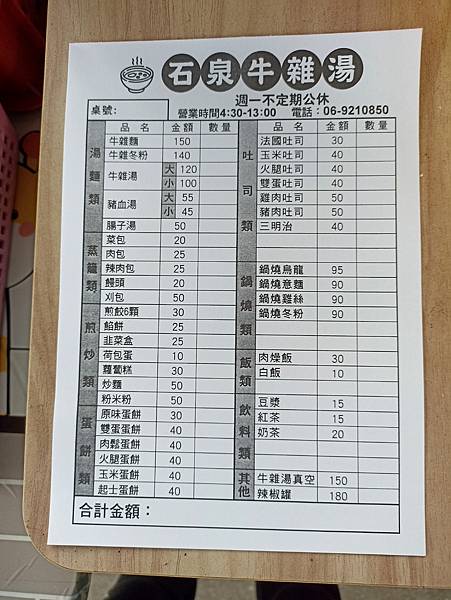 石泉牛雜湯
週一不定期公休
桌號:
營業時間4:30-13:00 電話:06-9210850
品名 金額 數量
湯麵類
牛雜麵 150
牛雜冬粉 140
牛雜湯 大 120
小 100
豬血湯 大 55
小 45
腸子湯 50
蒸籠類
菜包 20
肉包 25
辣肉包 25
饅頭 20
刈包 50
煎炒類
煎餃6顆 30
餡餅 25
韭菜盒 25
荷包蛋 10
蘿蔔糕 30
炒麵 50
粉米粉 50
蛋餅類
原味蛋餅 30
雙蛋蛋餅 40
肉鬆蛋餅 40
火腿蛋餅 40
玉米蛋餅 40
起士蛋餅 40
品名 金額 數量
吐司類
法國吐司 30
玉米吐司 40
火腿吐司 40
雙蛋吐司 40
雞肉吐司 50
豬肉吐司 50
三明治 40
鍋燒類
鍋燒烏龍 95
鍋燒意麵 90
鍋燒雞絲 90
鍋燒冬粉 90
飯類
肉燥飯 30
白飯 10
飲料類
豆漿 15
紅茶 15
奶茶 20
其他
牛雜湯真空 150
辣椒罐 180
合計金額：